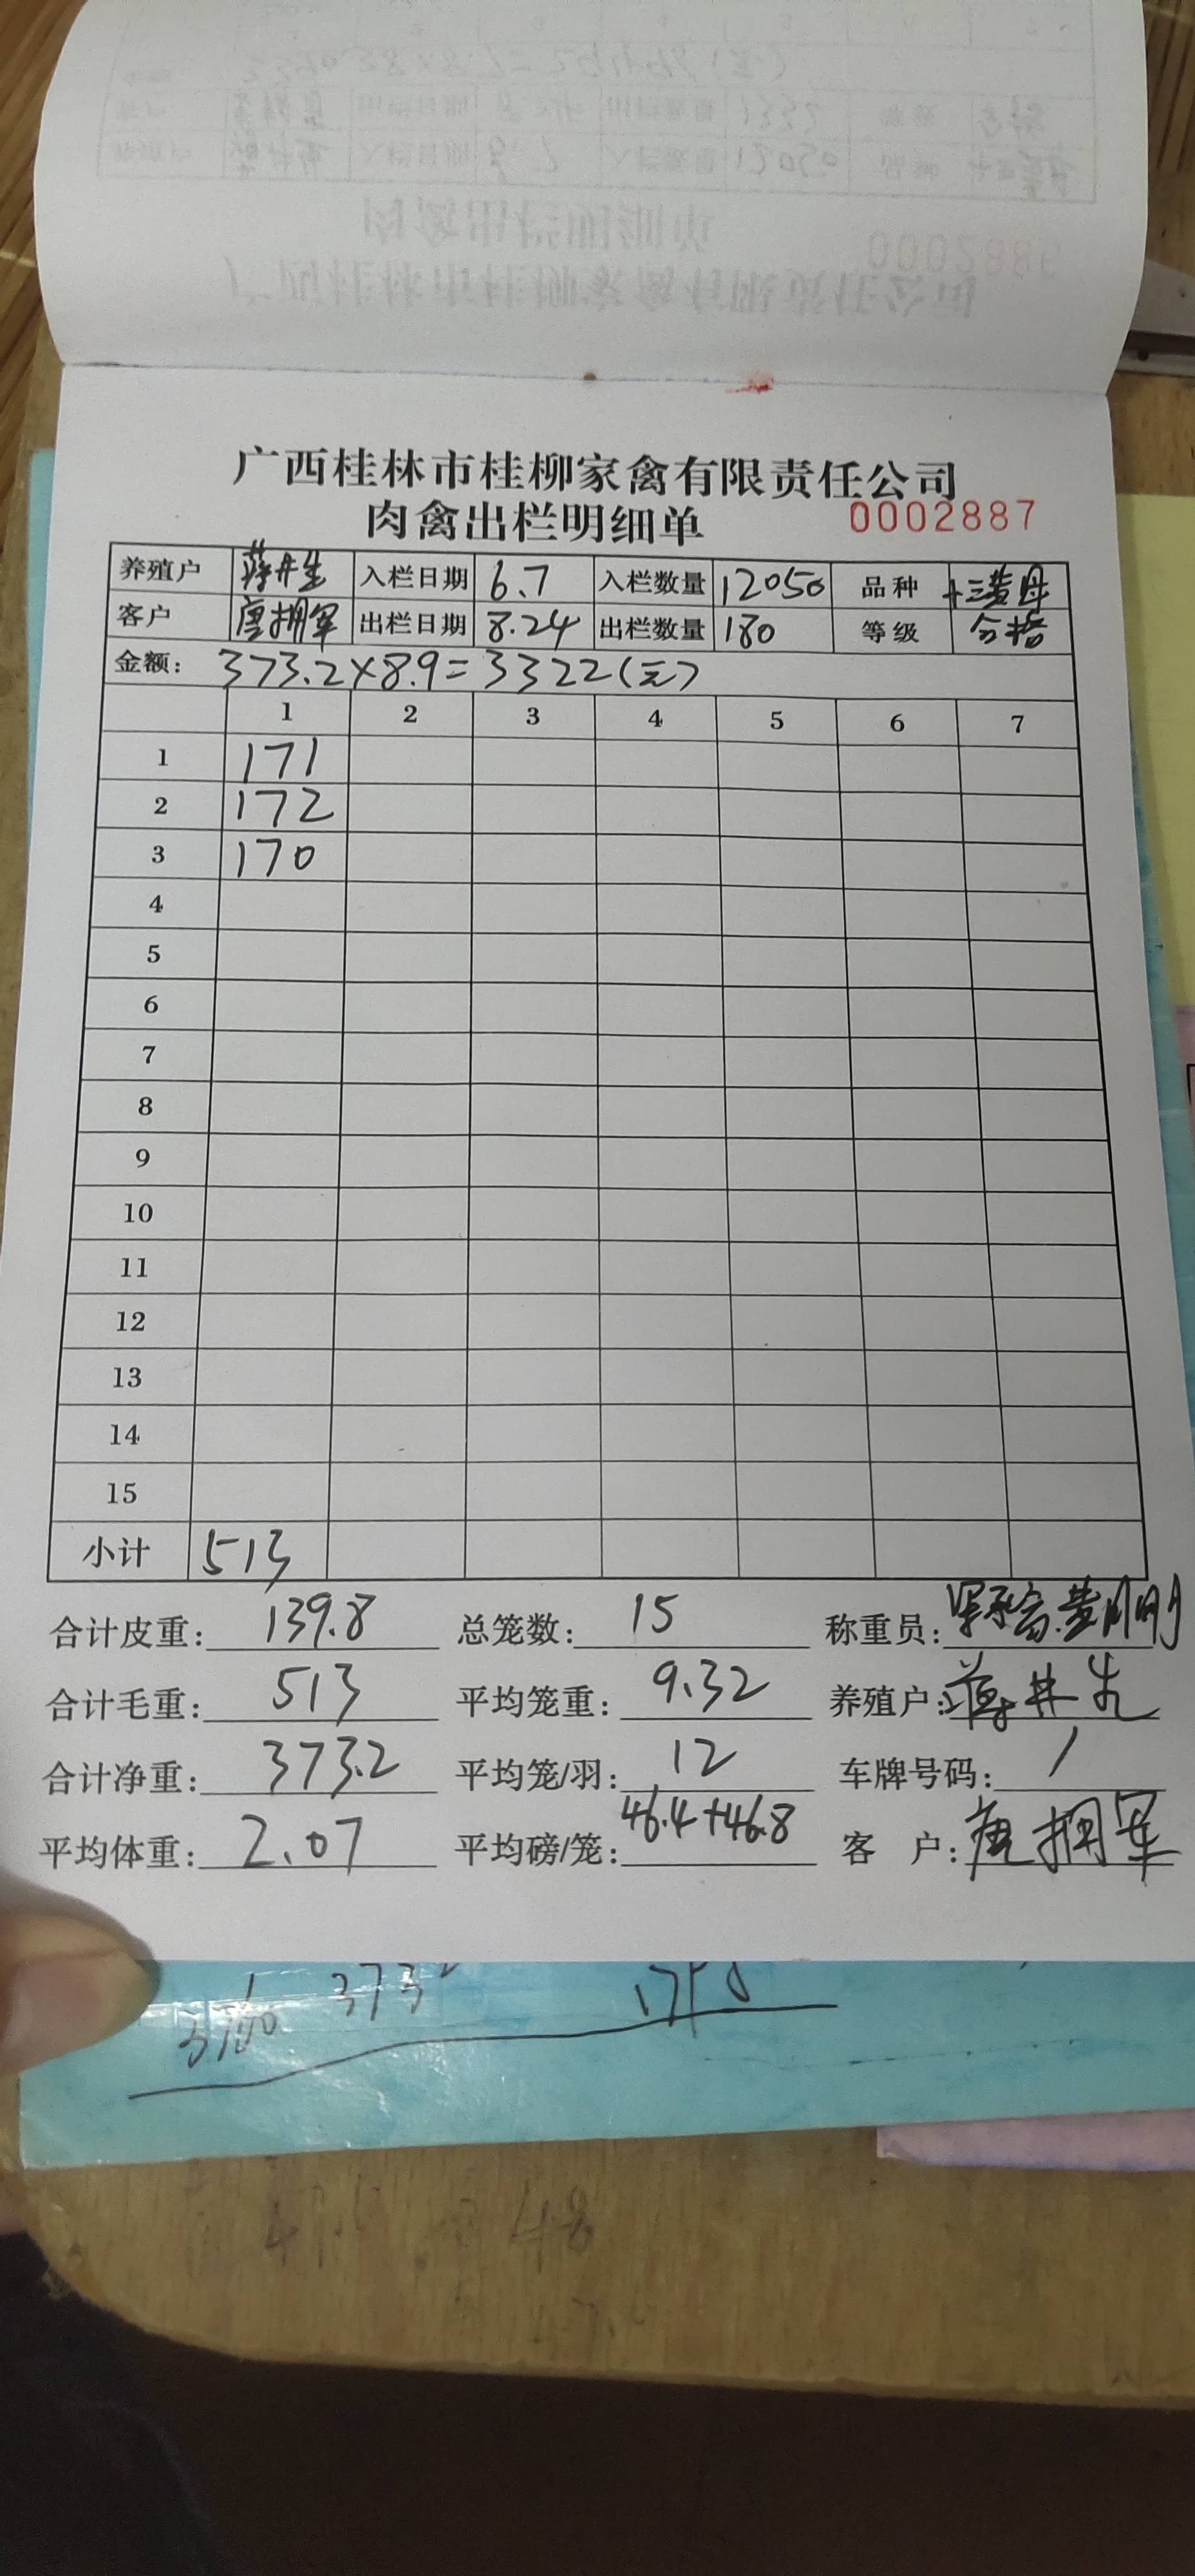 广西桂林市桂柳家禽有限责任公司
肉禽出栏明细单 0002887
养殖户 蒋井生 入栏日期 6.7 入栏数量 12050 品种 土三黄母
客户 唐拥军 出栏日期 8.24 出栏数量 180 等级 合格
金额: 373.2×8.9=3322(元)
1 2 3 4 5 6 7
1 171
2 172
3 170
4
5
6
7
8
9
10
11
12
13
14
15
小计 513
合计皮重: 139.8 总笼数: 15 称重员:
合计毛重: 513 平均笼重: 9.32 养殖户: 蒋井生
合计净重: 373.2 平均笼/羽: 12 车牌号码: /
平均体重: 2.07 平均磅/笼: 46.4+46.8 客 户: 唐拥军